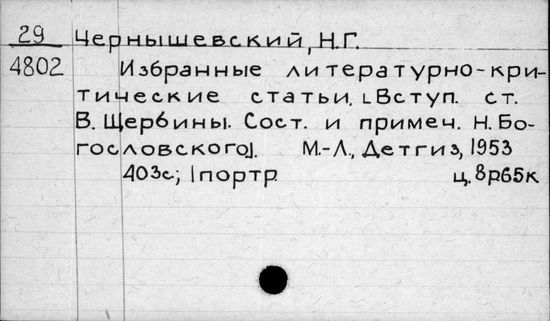 29 Чернышевский, Н.Г.
4802 Избранные литературно-кри-
тические статьи. [Вступ. ст.
В. Щербины. Сост. и примеч. Н. Бо-
гословского]. М.-Л., Детгиз, 1953
403с; 1портр. ц. 8р65к